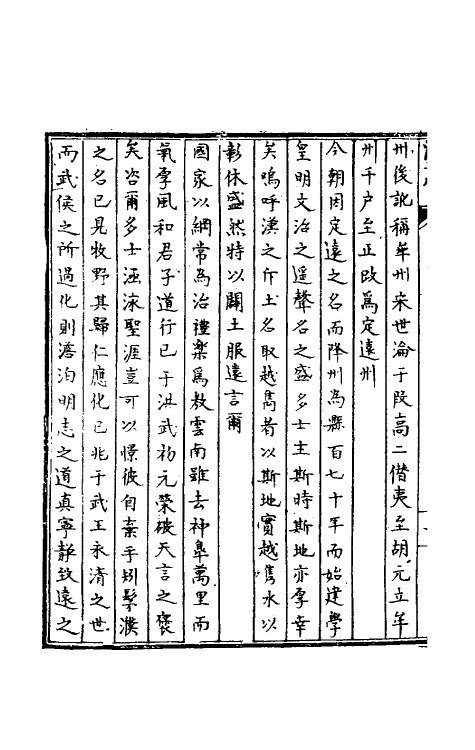 州後訛稱牟州宋世淪于段高二僭夷至胡元立牟
州千户至正改爲定遠州
今朝因定遠之名而降州為縣百七十年而始建學
皇明文治之遥聲名之盛多士主斯時斯地亦孚幸
矣嗚呼漢之斥土名取越雋者以斯地實越雋水以
彰休盛然特以闢土服遠言爾
國家以綱常為治禮樂為教雲南雖去神臯萬里而
氣孚風和君子道行已于洪武初元榮被天言之褒
矣咨爾多士涵泳聖涯豈可以憬彼自棄乎矧髳濮
之名已見牧野其歸仁應化已兆于武王永清之世
而武侯之所過化則澹泊明志之道真寧静致遠之